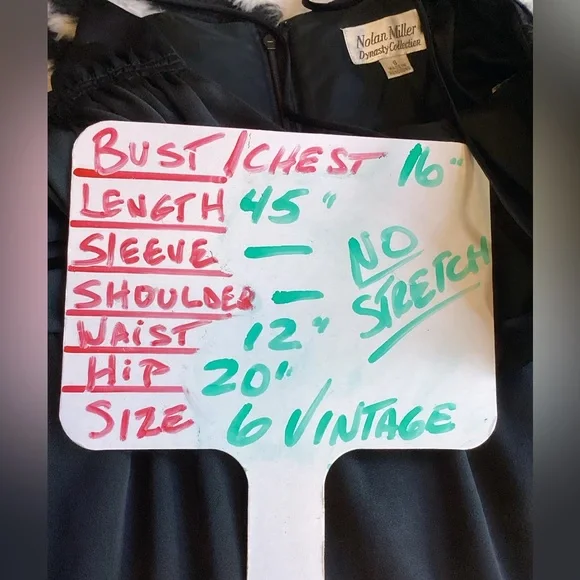 Nolan Miller
Dynasty Collection
BUST/CHEST 16"
LENGTH 45"
SLEEVE —
SHOULDER —
NO
STRETCH
WAIST 12"
HIP 20"
SIZE 6 VINTAGE